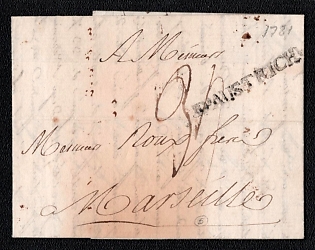 1781
A Messieurs
MAESTRICH
Messieurs Roux freres
Marseille
E